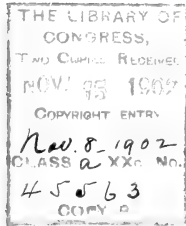 THE LIBRARY OF
CONGRESS,
TWO COPIES RECEIVED
NOV. 1902
COPYRIGHT ENTRY
Nov. 8-1902
CLASS a XXc. No.
45563
COPY